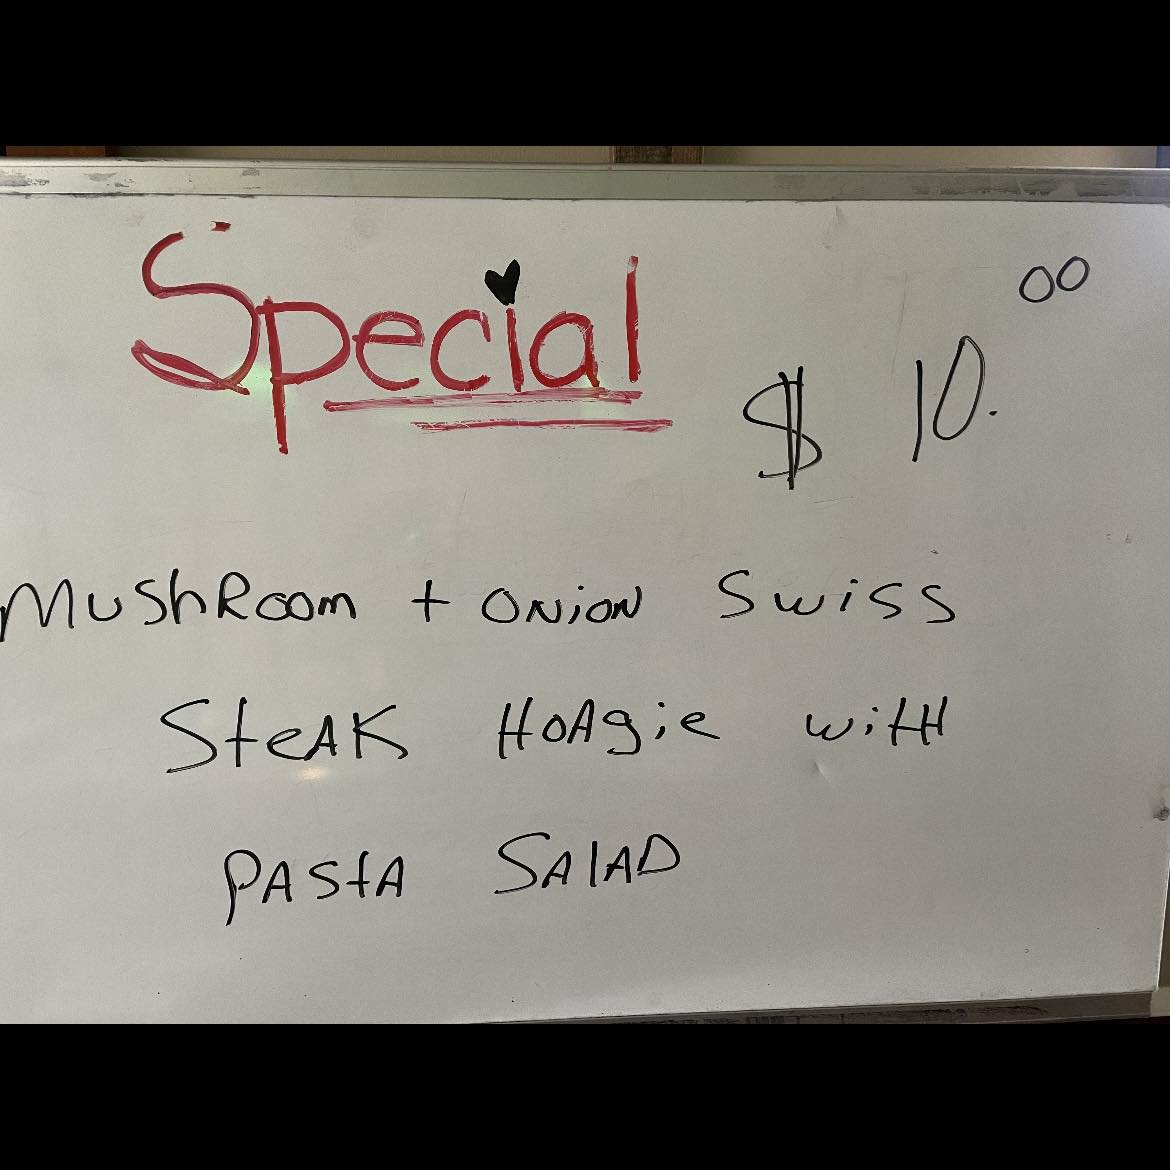 Special $ 10.00
MushRoom + ONiON Swiss
SteAK HoAgie witH
PAStA SAlAD